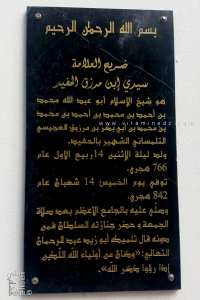 بسم الله الرحمن الرحيم
ضريح العلامة
سيدي ابن مرزق الحفيد
هو شيخ الإسلام أبو عبد الله محمد
بن أحمد بن محمد بن أحمد بن محمد
بن محمد بن أبي بكر بن مرزوق العجيسي
التلمساني الشهير بالحفيد.
ولد ليلة الاثنين 14 ربيع الاول عام
766 هجري.
توفي يوم الخميس 14 شعبان عام
842 هجري.
وصلي عليه بالجامع الأعظم بعد صلاة
الجمعة و حضر جنازته السلطان فمن
دونه قال تلميذه أبو زيد عبد الرحمان
الثعالبي: «وكان من أولياء الله الذين
إذا رؤوا ذكر الله».